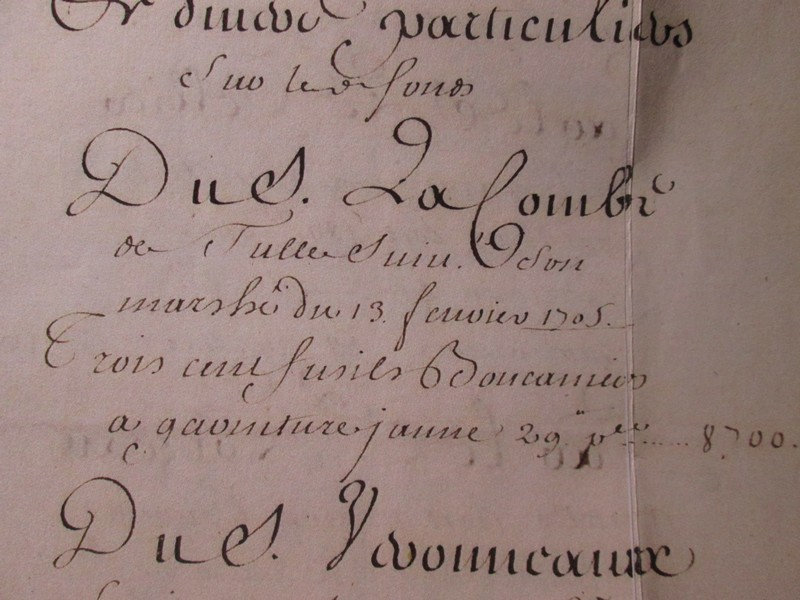 Et diverd particuliers
Sur led. fond
Du S. La Combe
de Tulle Suiv.t Son
marshé du 13. feuvrier 1705.
Trois cent fusils Boucaniers
a garniture jaune 29.# p.ce ...... 8700.
Du S. Yvonneaux